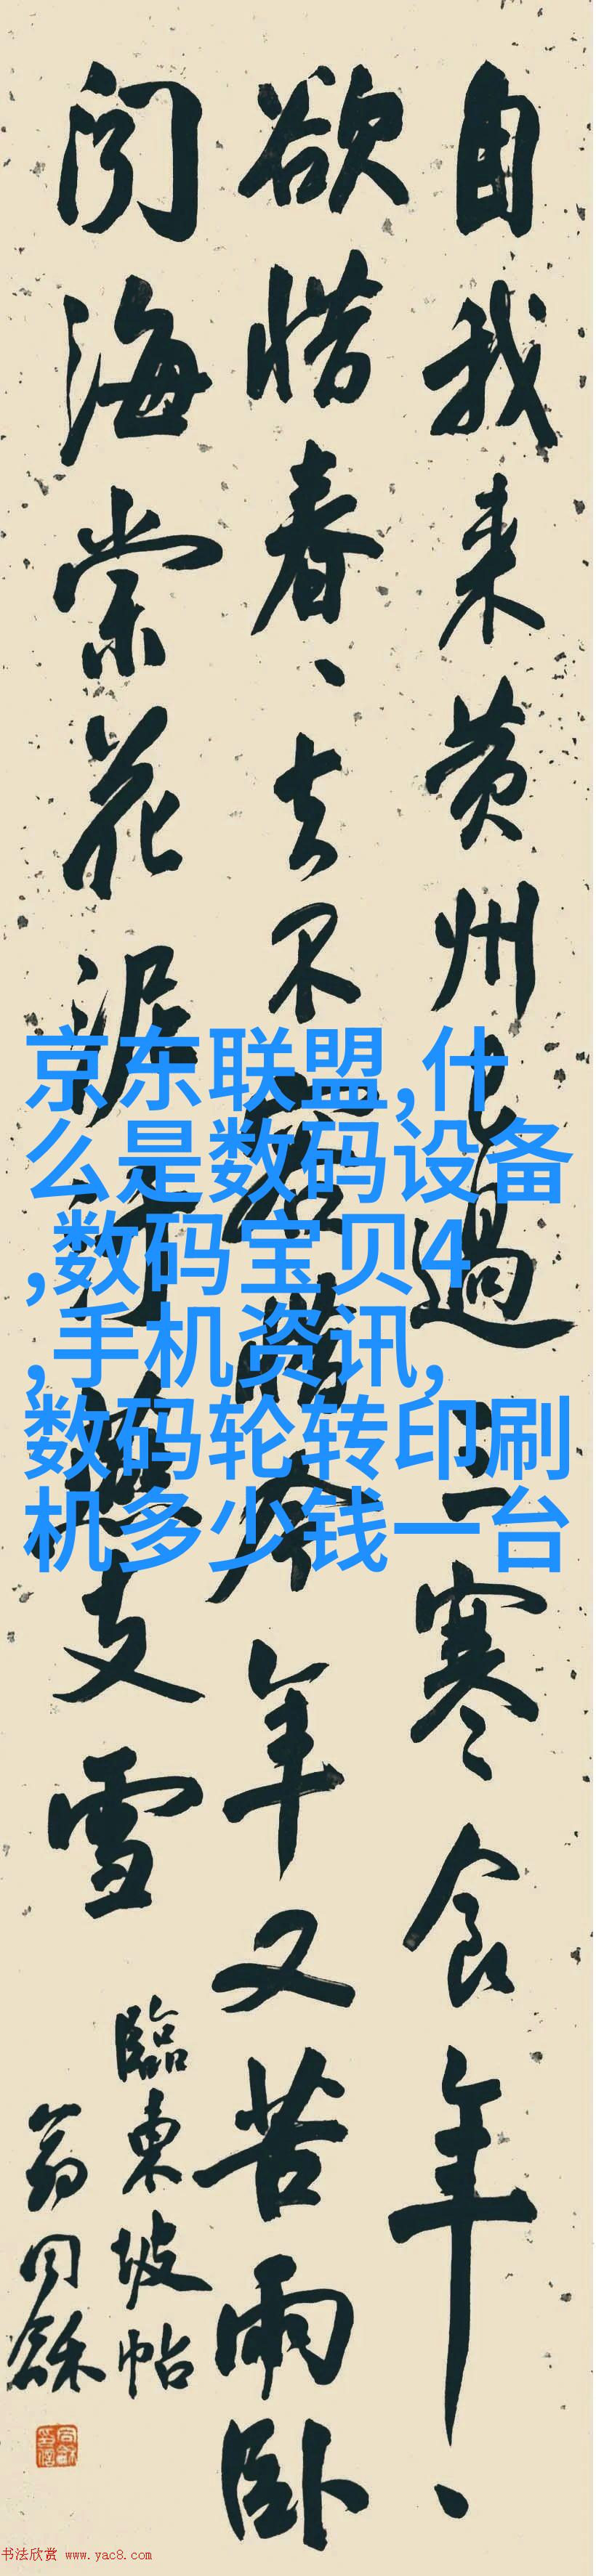 自我来黄州已過三寒食年、
欲惜春、去不容惜今年又苦雨卧
闻海棠花泥汙燕支雪
臨東坡帖
翁同龢
京东联盟,什
么是数码设备
,数码宝贝4
,手机资讯,
数码轮转印刷
机多少钱一台
书法欣赏 www.yac8.com